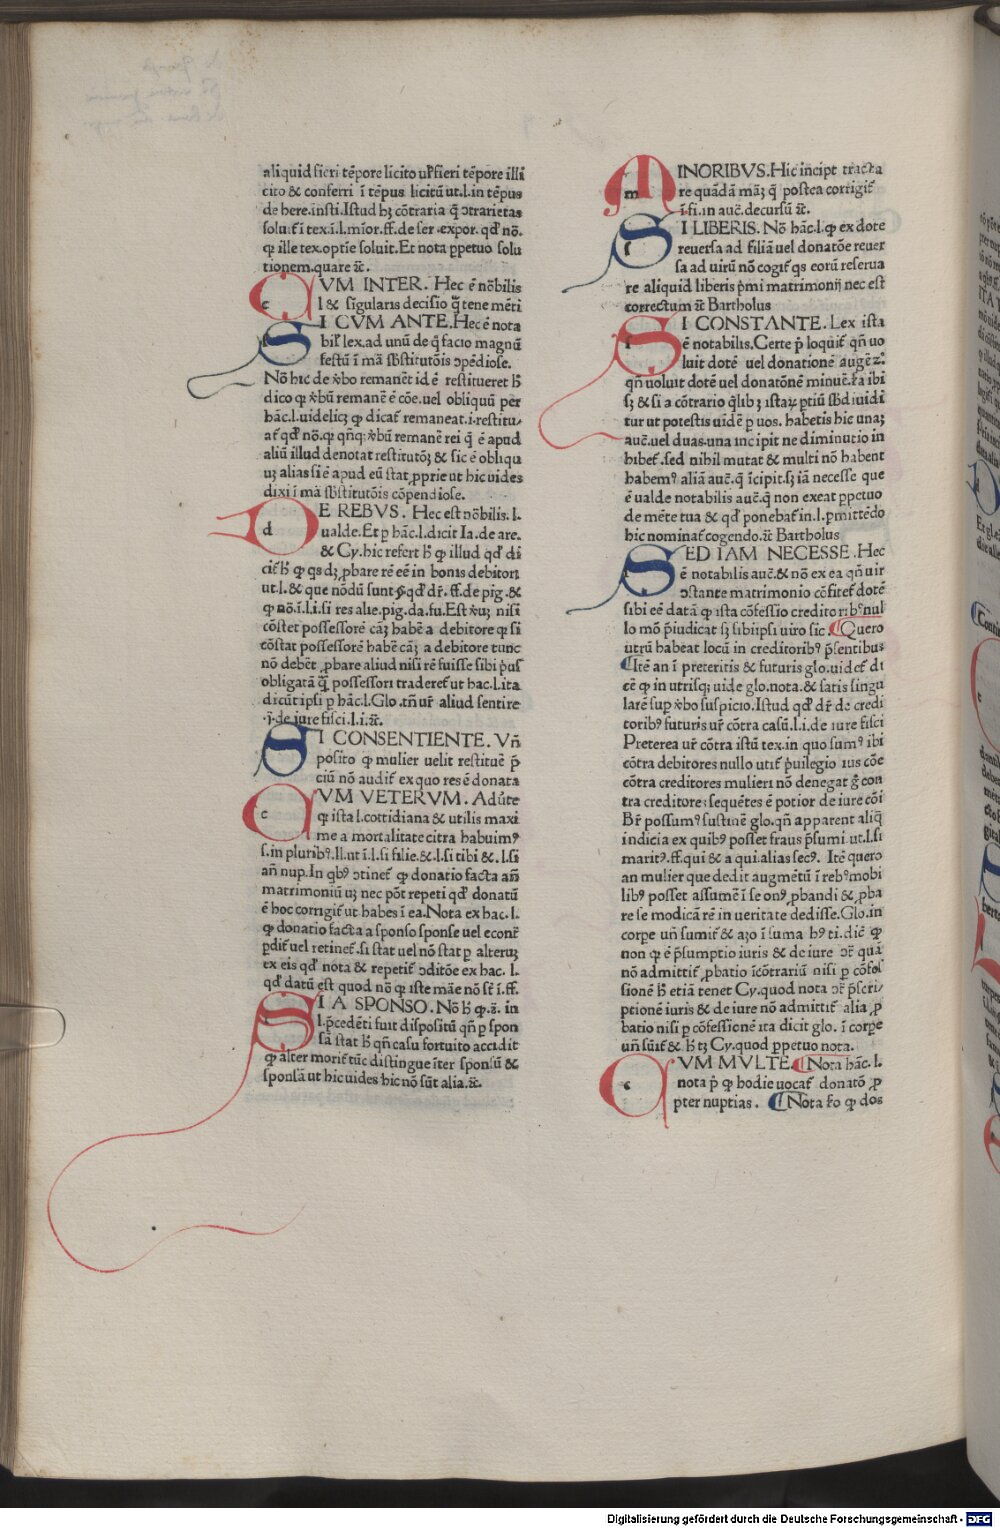 aliquid fieri tēpore licito uł fieri tēpore illi
cito & conferri ī tēpus licitū ut.l.in tēpus
de here.insti.Istud hꝫ cōtraria q̄ ↄtrarietas
soluit̄ ī tex.ī.l.mīor.ff.de ser.expor. qđ nō.
ꝙ ille tex.optīe soluit.Et nota ꝑpetuo solu
tionem.quare &c̄.
CVM INTER. Hec ē nōbilis
l & sīgularis decisio q̄ tene mēti
SI CVM ANTE.Hec ē nota
bil' lex.ad unū de q̄ facio magnū
festū ī mā sb̄stitutōis ↄpēdiose.
Nō hic de v̄bo remanēt id ē restitueret h̄
dico ꝙ v̄bū remanē ē cōe.uel obliquū per
hāc.l.uidelicꝫ ꝙ dicat̄ remaneat.i.restitu/
at̄ qđ nō.ꝙ qn̄qꝫ v̄bū remanēt rei q̄ ē apud
aliū illud denotat restitutōꝫ & sic ē obliqu
uꝫ alias si ē apud eū stat ꝓprie ut hic uides
dixi ī mā sb̄stitutōis cōpendiose.
DE REBVS. Hec est nōbilis.l.
ualde.Et ꝑ hāc.l.dicit Ia.de are.
& Cy.hic refert h̄ ꝙ illud qđ di
cit̄ h̄ ꝙ qs dꝫ ꝓbare rē eē in bonis debitori
ut.l.& que nōdū sunt §.qđ dr̄.ff.de pig.&
ꝙ nō.ī.l.i.si res alie.pig.da.fu.Est v̄uꝫ nisi
cōstet possessorē cāꝫ habē a debitore ꝙ si
cōstat possessorē habē cāꝫ a debitore tunc
nō debēt ꝓbare aliud nisi rē fuisse sibi p̄us
obligatā q̄ possessori traderet̄ ut hac.l.ita
dicūt ipsi ꝑ hāc.l.Glo.tn̄ ur̄ aliud sentire
.ī.de iure fisci.l.i.&c̄.
SI CONSENTIENTE. Vn̄
posito ꝙ mulier uelit restituē p̄
ciū nō audit̄ ex quo res ē donata
CVM VETERVM. Adūte
ꝙ ista l.cottidiana & utilis maxi
me a mortalitate citra habuimꝰ
s.in pluribꝰ.ll.ut ī.l.si filie.&.l.si tibi &.l.si
an̄ nup.In qbꝰ ↄtinet̄ ꝙ donatio facta an̄
matrimoniū uꝫ nec pōt repeti qđ donatū
ē hoc corrigit̄ ut habes ī ea.Nota ex hac.l.
ꝙ donatio facta a sponso sponse uel econt̄
ꝑdit̄ uel retinet̄.si stat uel nō stat ꝑ alteruꝫ
ex eis qđ nota & repetit̄ ↄditōe ex hac. l.
qđ datū est quod nō ꝙ iste māe nō st̄ ī.ff.
SI A SPONSO. Nō h̄ ꝙ.ā. in
l.p̄cedēti fuit dispositū qn̄ ꝑ spon
sā stat h̄ qn̄ casu fortuito accidit
ꝙ alter morit̄ tūc distingue īter sponsū &
sponsā ut hic uides hic nō sūt alia.&c̄.
MINORIBVS.Hic incipt tracta
re quādā māꝫ q̄ postea corrigit̄
ī.fi.in auē.decursū &c̄.
SI LIBERIS. Nō hāc.l.ꝙ ex dote
reuersa ad filiā uel donatōe reuer
sa ad uirū nō cogit̄ qs eorū reserua
re aliquid liberis p̄mi matrimonij nec est
correctum &c̄ Bartholus
SI CONSTANTE. Lex ista
ē notabilis.Certe p̄ loquit̄ qn̄ uo
luit dotē uel donationē augē ⁊.ꝰ
qn̄ uoluit dotē uel donatōnē minuē.ſ̄a ibi
sꝫ & si a cōtrario q̄libꝫ istaꝝ ꝑtiū sb̄diuidi
tur ut potestis uidē ꝑ uos. habetis hic unaꝫ
auē.uel duas.una incipit ne diminutio in
hibet̄.sed nihil mutat & multi nō habent
habemꝰ aliā auē.q̄ īcipit.sꝫ iā necesse que
ē ualde notabilis auē.q̄ non exeat ꝑpetuo
de mēte tua & qđ ponebat̄ in.l.ꝑmittēdo
hic nominat̄ cogendo.&c̄ Bartholus
SED IAM NECESSE.Hec
ē notabilis auē.& nō ex ea qn̄ uir
ↄstante matrimonio cōfitet̄ dotē
sibi eē datā ꝙ ista cōfessio creditoribꝰ nul
lo mō p̄iudicat sꝫ sibi ipsi uiro sic. Quero
utrū habeat locū in creditoribꝰ p̄sentibus
Itē an ī preteritis & futuris glo.uidet̄ di
cē ꝙ in utrisqꝫ uide glo.nota.& satis singu
larē suꝑ v̄bo suspicio.Istud qđ dr̄ de credi
toribꝰ futuris ur̄ cōtra casū.l.i.de iure fisci
Preterea ur̄ cōtra istū tex.in quo sumꝰ ibi
cōtra debitores nullo utit̄ p̄uilegio ius cōe
cōtra creditores mulieri nō denegat̄ g̊ con
tra creditores sequētes ē potior de iure cōi
Br̄ possumꝰ sustinē glo.qn̄ apparent aliq̄
indicia ex quibꝰ posset fraus p̄sumi ut.l.si
maritꝰ.ff.qui & a qui.alias secꝰ. Itē quero
an mulier que dedit augmētū ī rebꝰ mobi
libꝰ posset assumē ī se onꝰ ꝓbandi & ꝓba
re se modicā rē in ueritate dedisse.Glo.in
corpe un̄ sumit̄ & aꝫo ī suma hꝰ ti.dicē ꝙ
non ꝙ ē p̄sumptio iuris & de iure ↄr̄ quā
nō admittit̄ ꝓbatio īcōtrariū nisi ꝑ cōfes
sionē h̄ etiā tenet Cy.quod nota ↄr̄ p̄scri/
ptionē iuris & de iure nō admittit̄ alia ꝓ
batio nisi ꝑ cōfessionē ita dicit glo. ī corpe
un̄ sūit̄ & h̄ tꝫ Cy.quod ꝑpetuo nota.
CVM MVLTE. Nota hāc.l.
nota p̄ ꝙ hodie uocat̄ donatō ꝓ
pter nuptias. Nota ſ̄o ꝙ dos
Digitalisierung gefördert durch die Deutsche Forschungsgemeinschaft - DFG